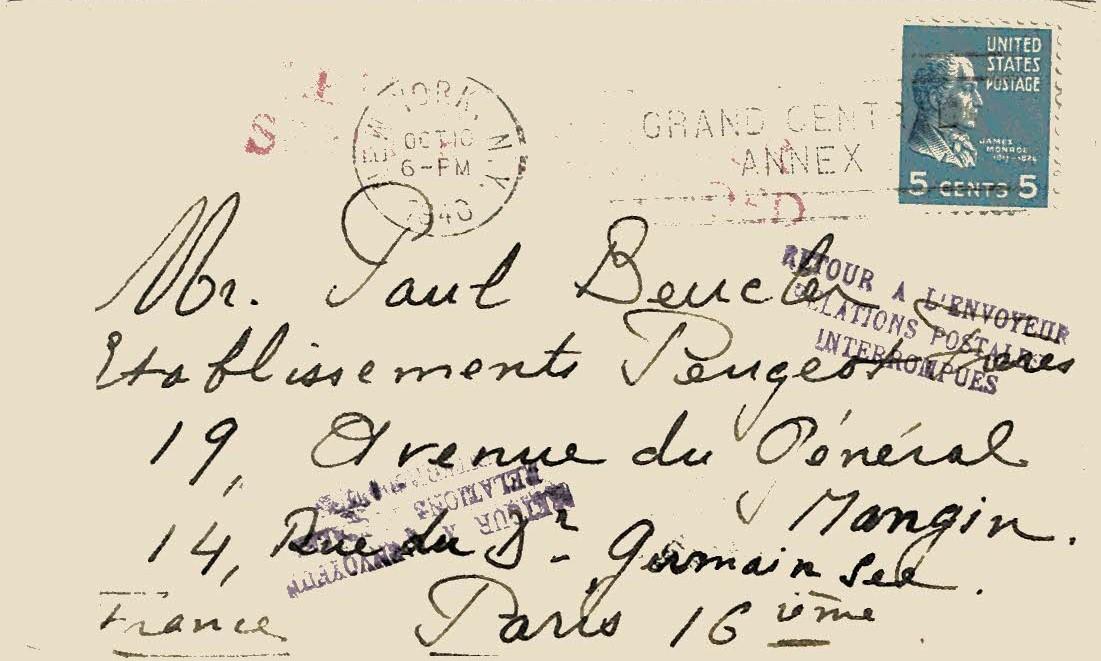 UNITED
STATES
POSTAGE
JAMES
MONROE
5 CENTS 5
YORK, N.Y.
OCT 10
6-PM
1940
GRAND CENTRAL
ANNEX
Mr. Paul Beucler
RETOUR A L'ENVOYEUR
RELATIONS POSTALES
INTERROMPUES
Etablissements Peugeot Freres
19, Avenue du Général
Mangin.
RETOUR A
ENVOYEUR
RELATIONS
14, Rue du Dr Germain See.
Paris 16 ième
France